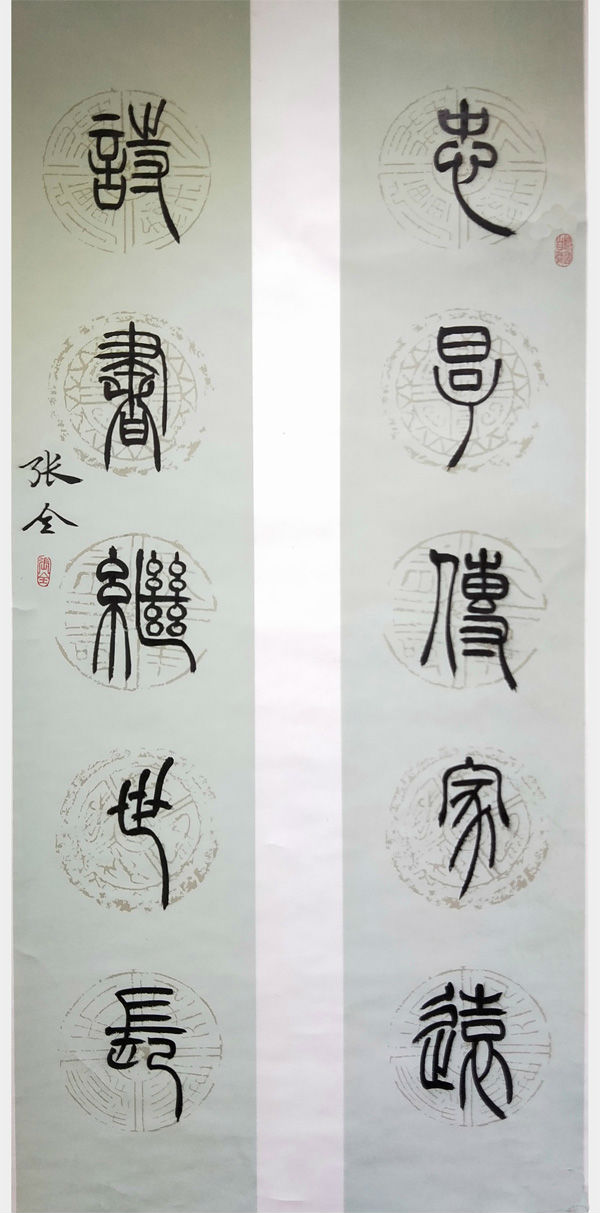 忠厚傳家遠
詩書繼世長
张全
张全